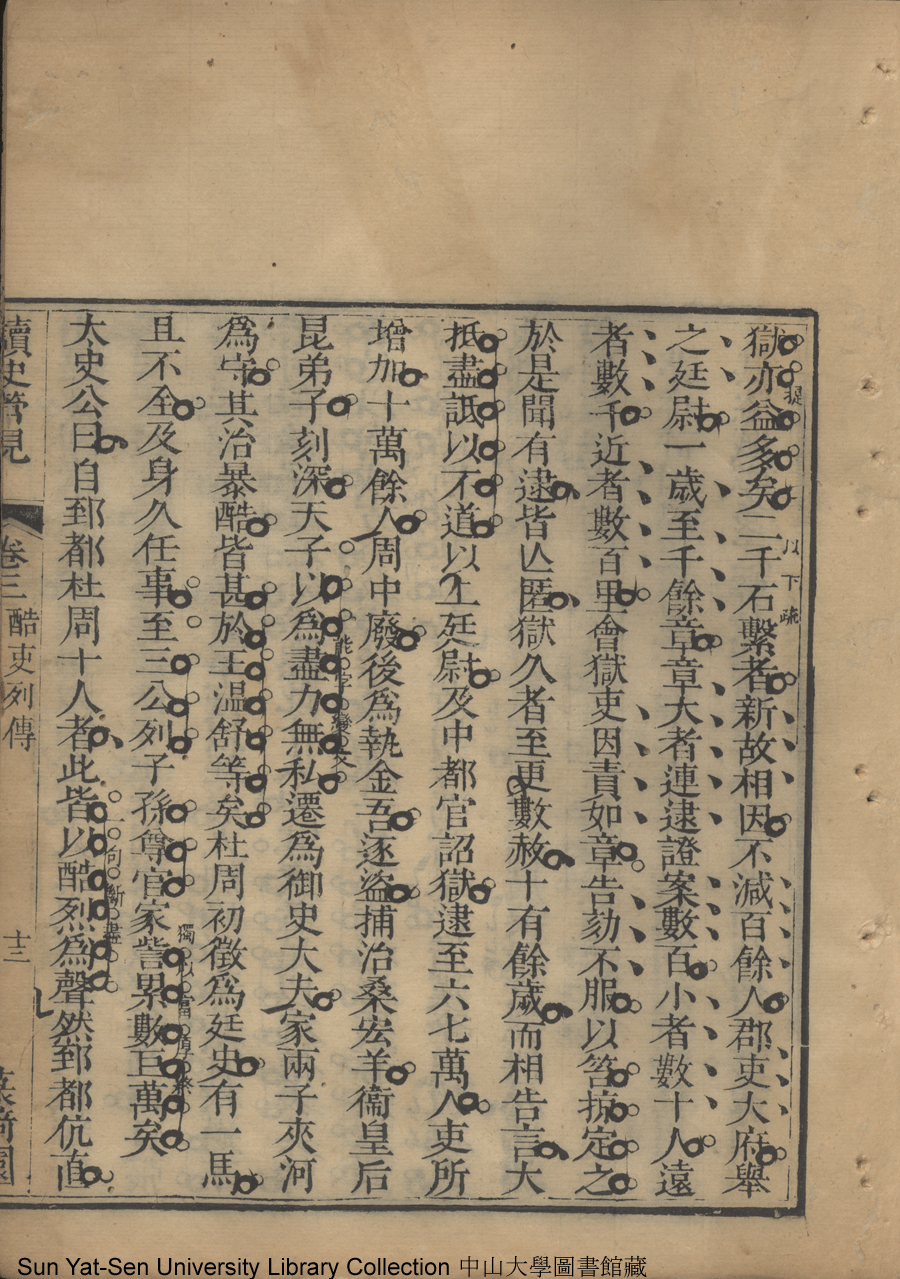 獄亦益多矣二千石繫者新故相因不減百餘人郡吏大府舉
提
以下疏
之廷尉一歲至千餘章章大者連逮證案數百小者數十人遠
者數千近者數百里會獄吏因責如章告劾不服以笞掠定之
於是聞有逮皆亾匿獄久者至更數赦十有餘歲而相告言大
抵盡詆以不道以上廷尉及中都官詔獄逮至六七萬人吏所
增加十萬餘人周中廢後爲執金吾逐盜捕治桑宏羊衞皇后
昆弟子刻深天子以爲盡力無私遷爲御史大夫家兩子夾河
爲守其治暴酷皆甚於王温舒等矣杜周初徵爲廷史有一馬
且不全及身久任事至三公列子孫尊官家訾累數巨萬矣
獨以富厚終
太史公曰自郅都杜周十人者此皆以酷烈爲聲然郅都伉直
一句斷盡
讀史管見
卷三 酷吏列傳
十三
Sun Yat-Sen University Library Collection 中山大學圖書館藏